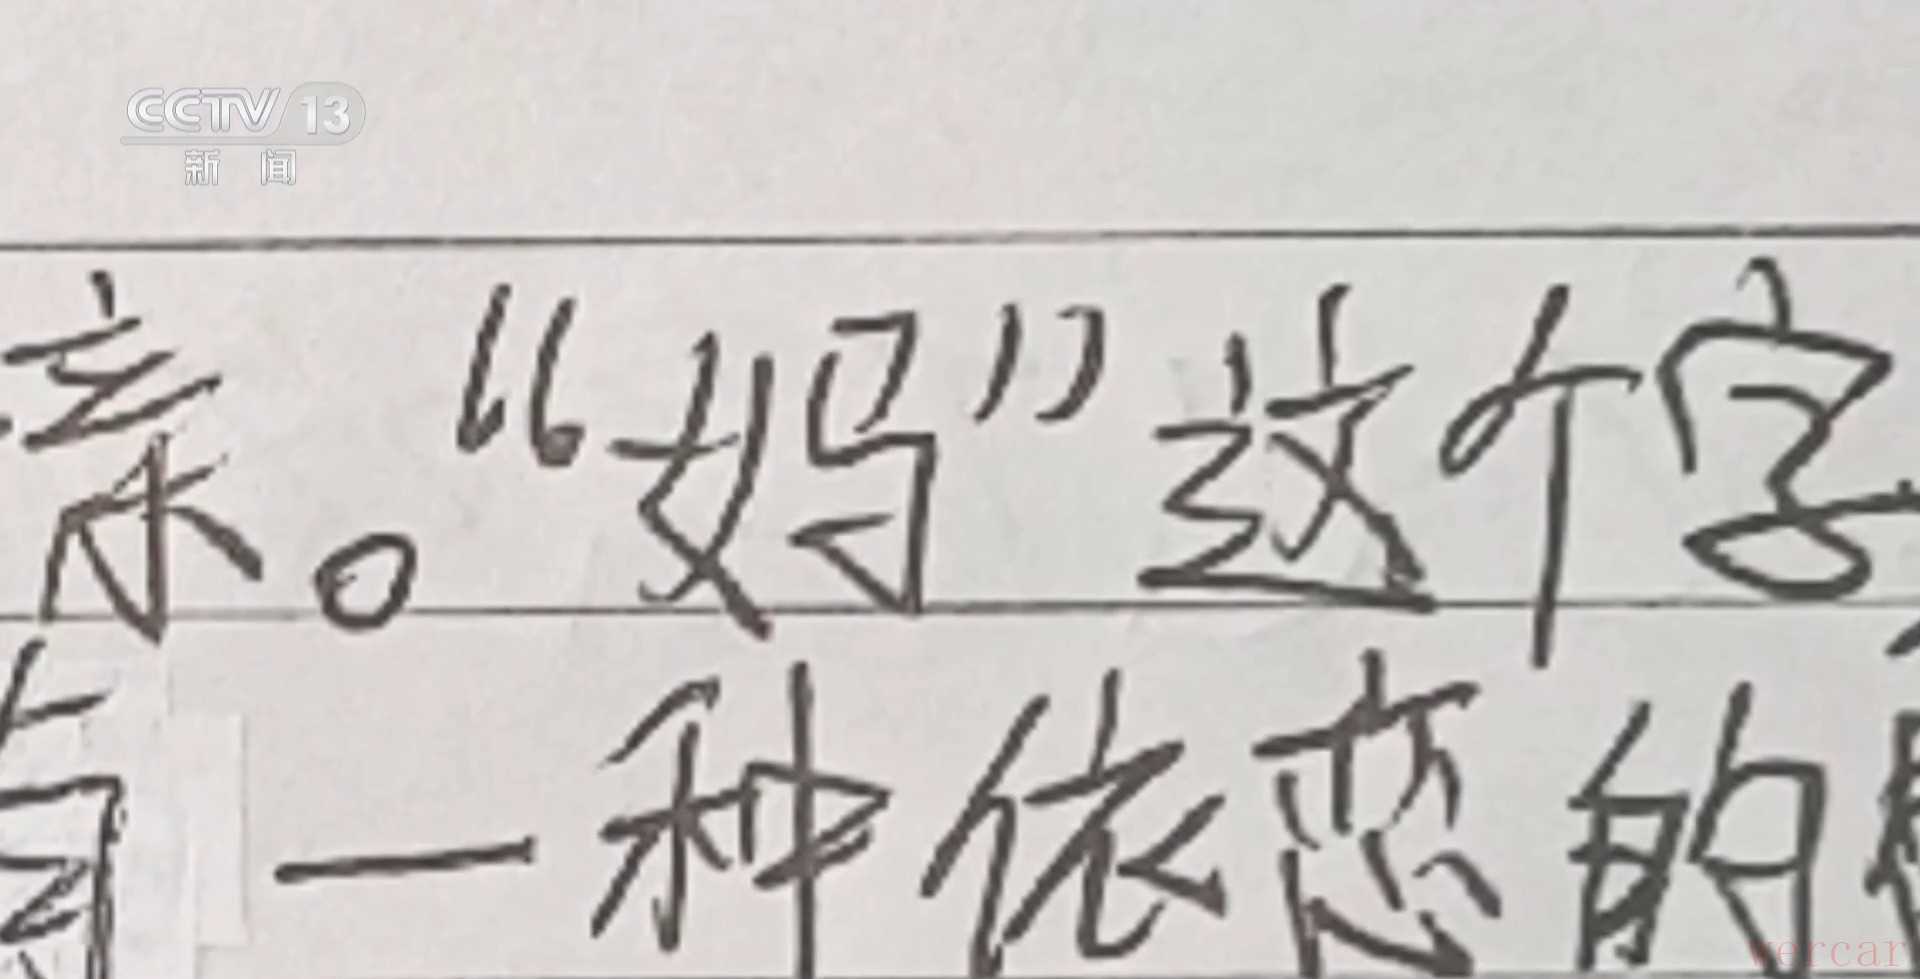 CCTV 13
新闻
亲。“妈”这个字
有一种依恋的
vercar